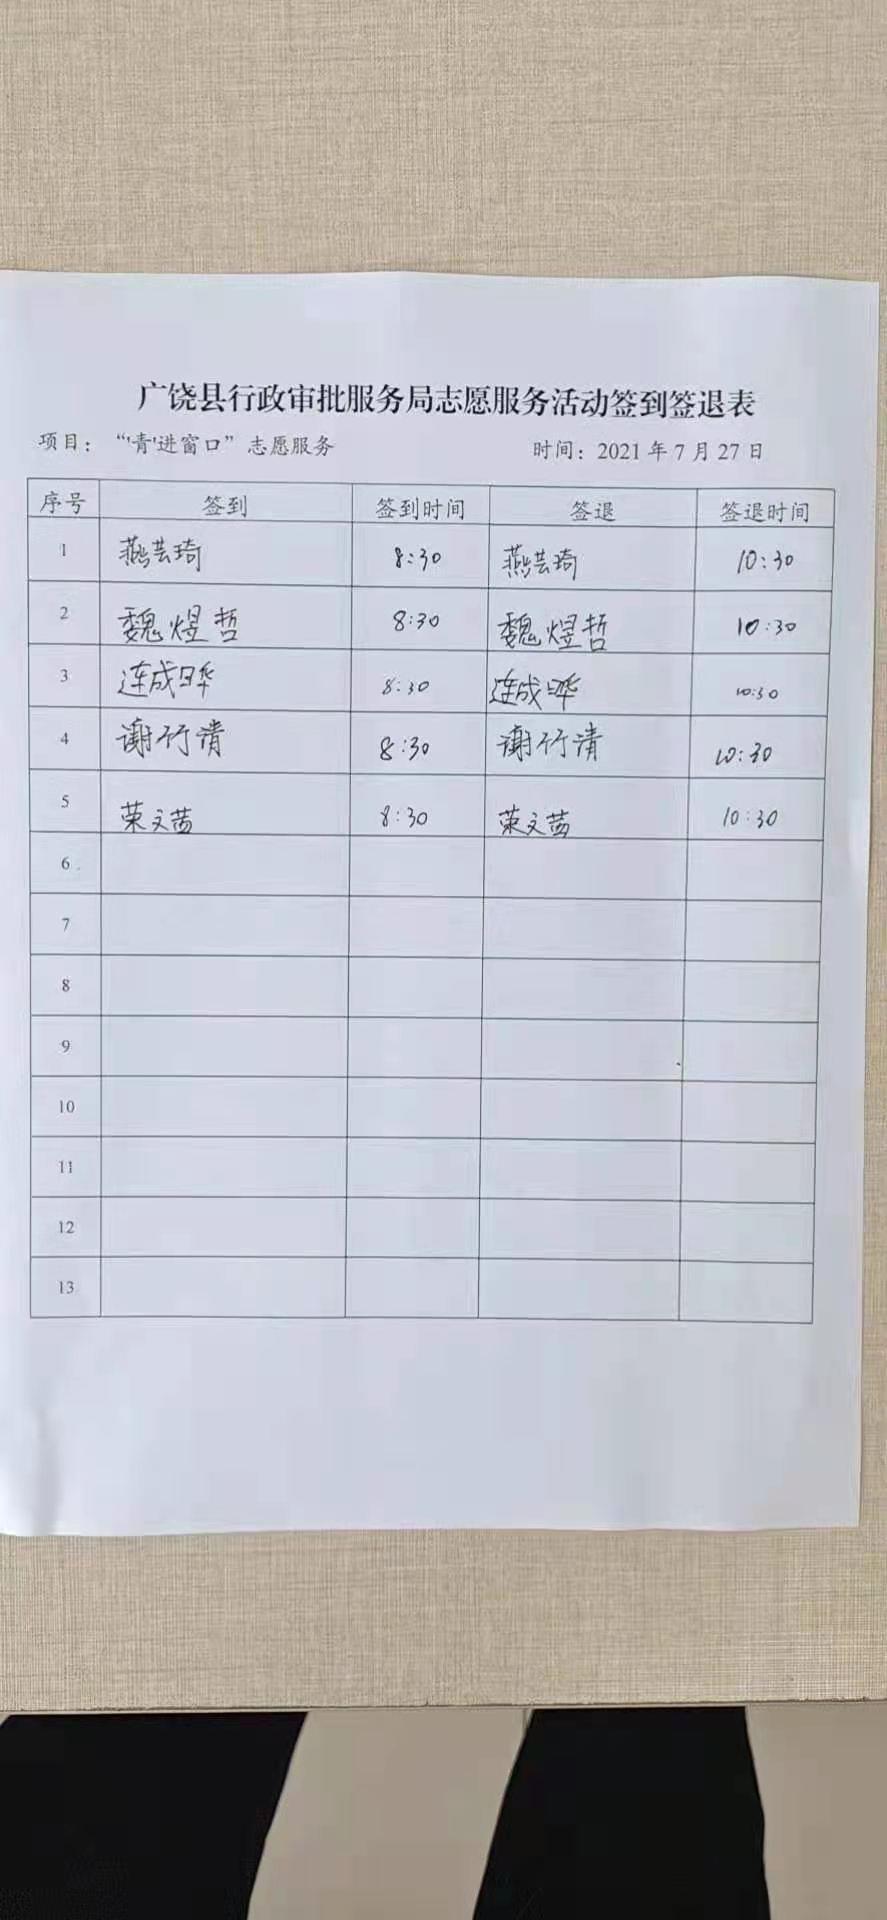 广饶县行政审批服务局志愿服务活动签到签退表
项目：“‘青’进窗口”志愿服务 时间：2021年7月27日
序号 签到 签到时间 签退 签退时间
1 燕芸琦 8:30 燕芸琦 10:30
2 魏煜哲 8:30 魏煜哲 10:30
3 连成晔 8:30 连成晔 10:30
4 谢竹清 8:30 谢竹清 10:30
5 荣文茜 8:30 荣文茜 10:30
6
7
8
9
10
11
12
13